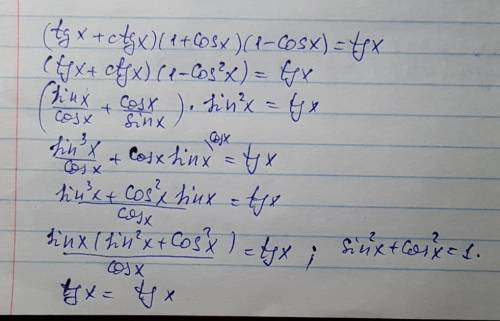 (tgx + ctgx)(1+cosx)(1-cosx) = tgx
(tgx + ctgx)(1-cos²x) = tgx
(sinx/cosx + cosx/sinx) · sin²x = tgx
sin³x/cosx + cosx sinx \cosx = tgx
(sin³x + cos²x sinx)/cosx = tgx
sinx(sin²x + cos²x)/cosx = tgx ; sin²x + cos²x = 1.
tgx = tgx